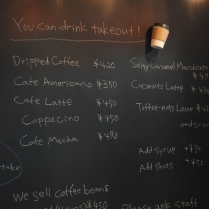 You can drink takeout!
Dripped Coffee ¥420
Cafe Americano ¥350
Cafe Latte ¥450
Cuppuccino ¥450
Cafe Mocha ¥490
Salty Caramel Macchiato
Coconuts Latte
Toffee-nuts Latte
Add syrup ¥30
Add shots
take
We sell coffee beans
Please ask Staff